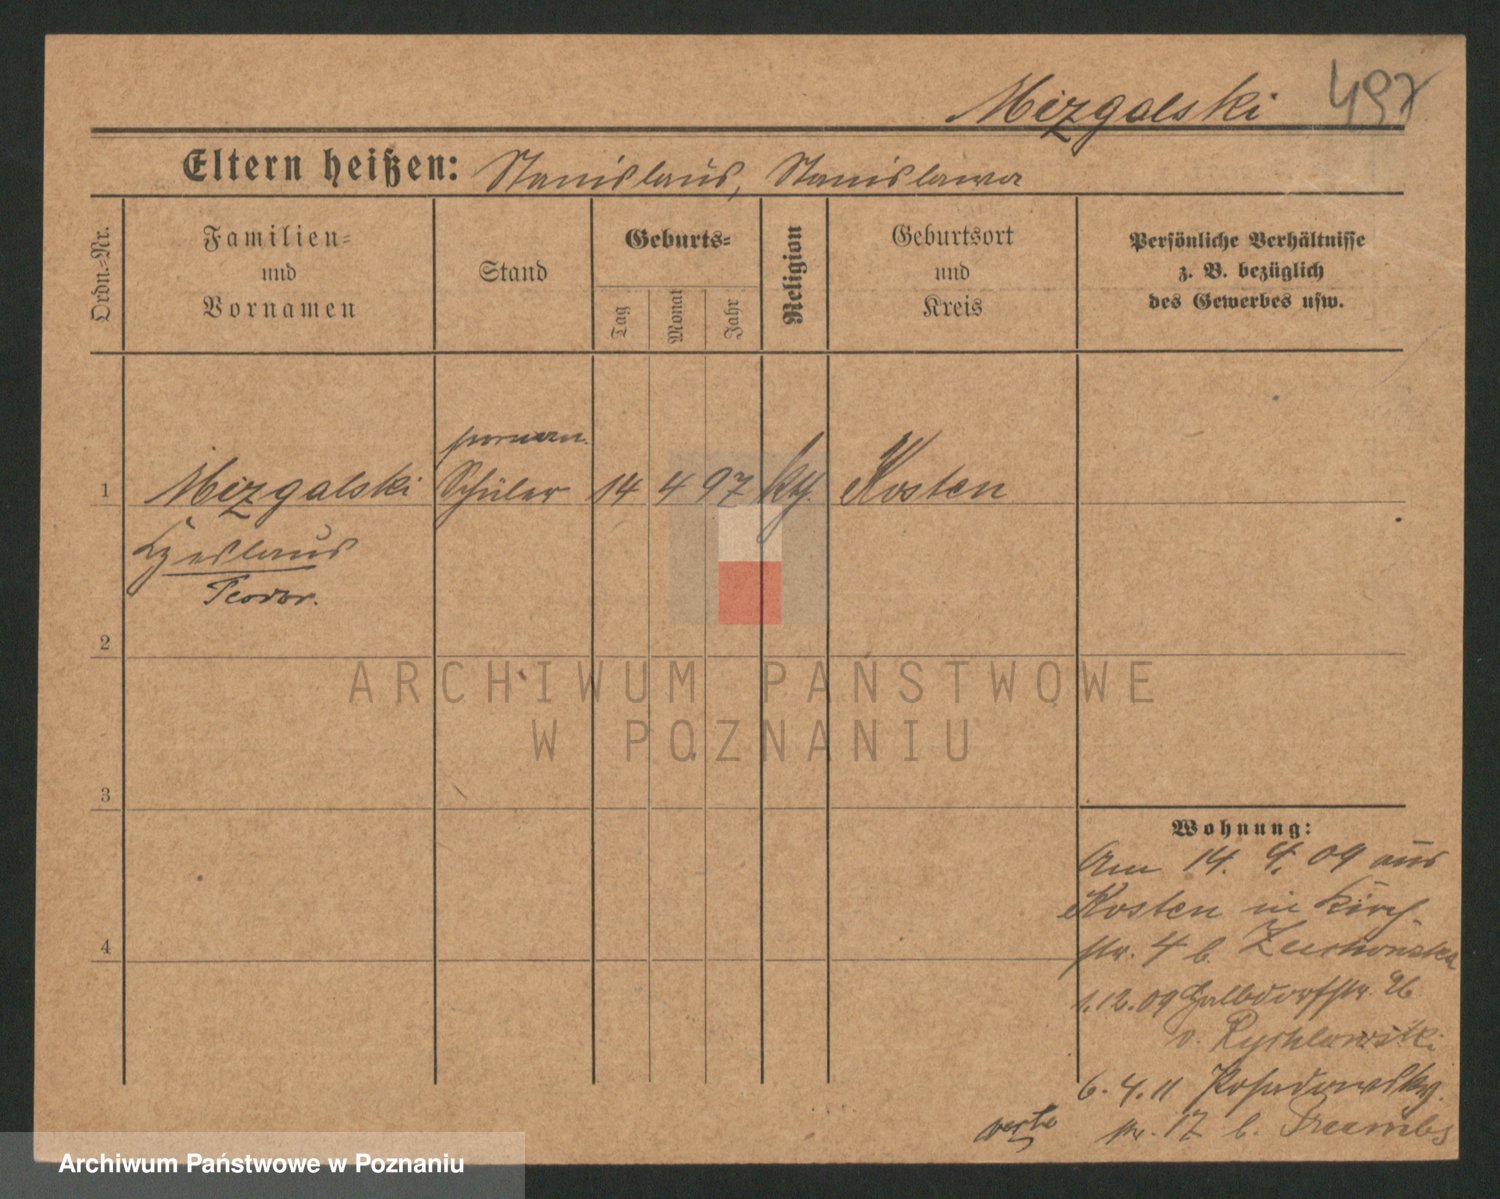 Mizgalski 497
Eltern heißen: Stanislaus, Stanislawa
Ordn.-Nr.
Familien-
und
Vornamen
Stand
Geburts-
Tag
Monat
Jahr
Religion
Geburtsort
und
Kreis
Persönliche Verhältnisse
z. B. bezüglich
des Gewerbes usw.
1 Mizgalski Schüler 14 4 97 kth. Kosten
Czeslaus
Teodor.
2
3
4
ARCHIWUM PAŃSTWOWE
W POZNANIU
Wohnung:
Am 14. 4. 09 aus
Kosten in Kirch-
str. 4 b.
1.12.09 Halbdorfstr. 26
v. Rychlowski
6. 4. 11 Posadowsky-
str. 17 b.
verte
Archiwum Państwowe w Poznaniu